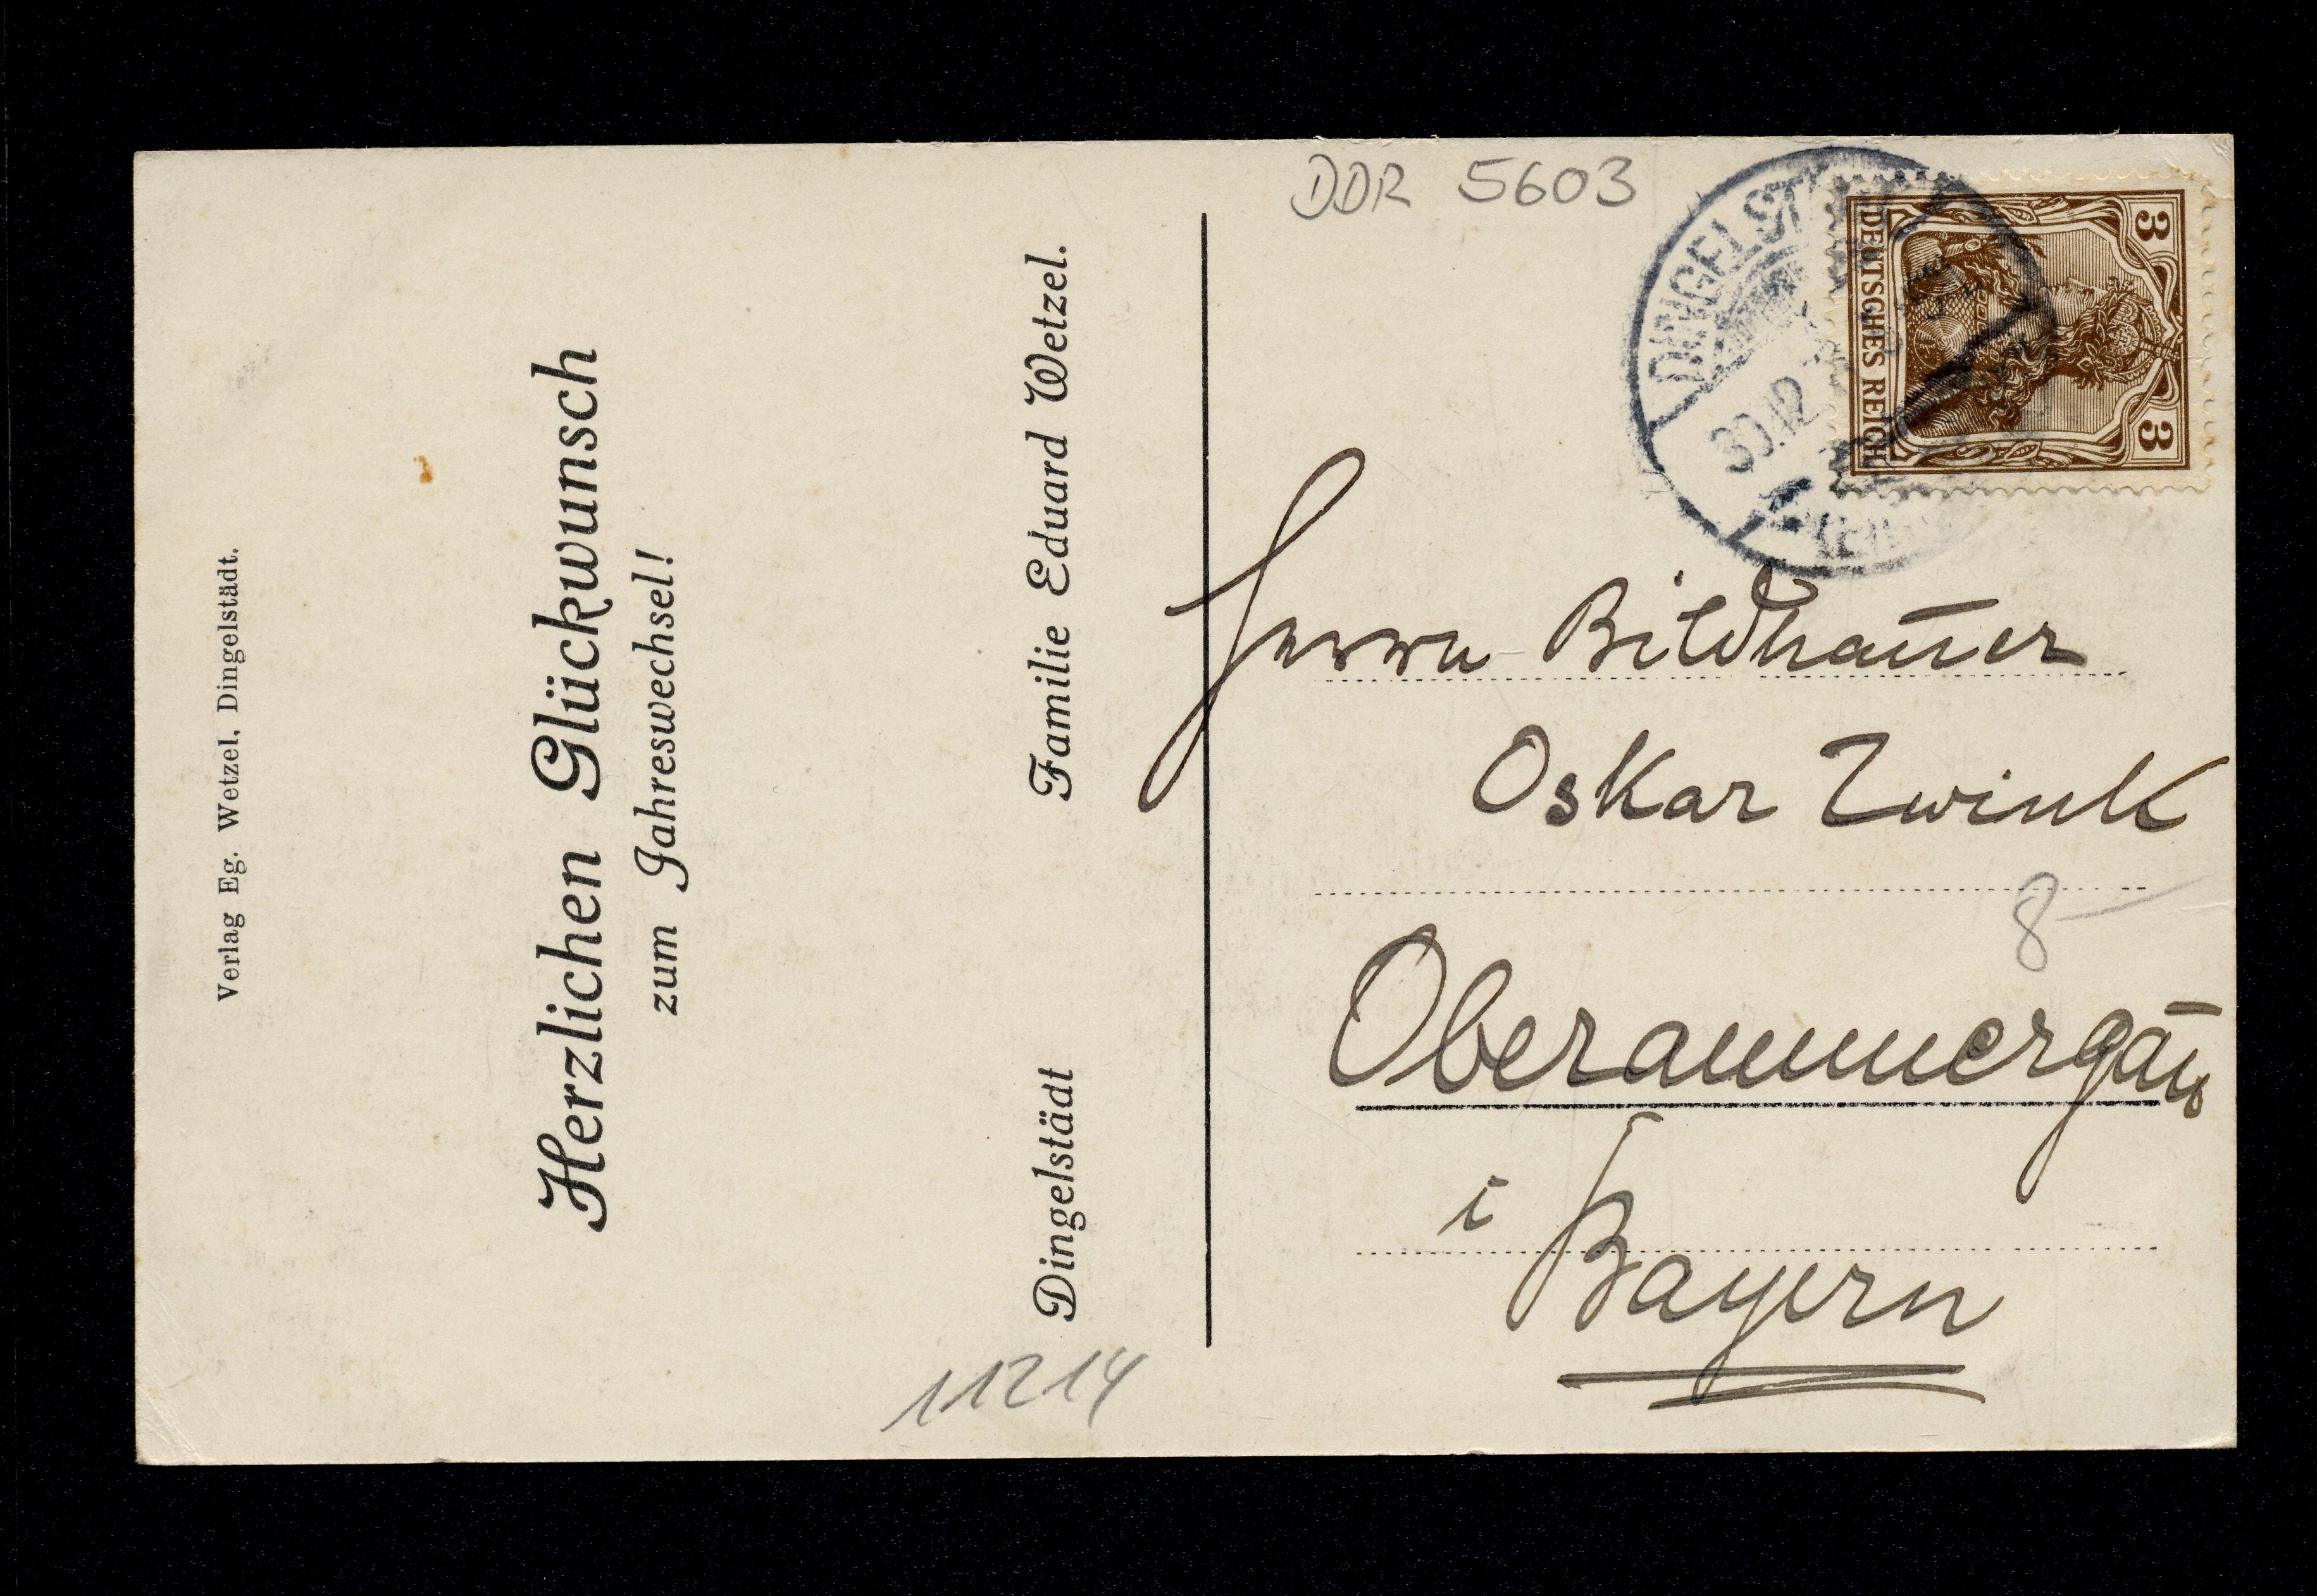 Verlag Eg. Wetzel, Dingelstädt.
Herzlichen Glückwunsch
zum Jahreswechsel!
Dingelstädt
Familie Eduard Wetzel.
11214
DDR 5603
DINGELST
30.12
3 3
DEUTSCHES REICH
Herrn Bildhauer
Oskar Zwink
8-
Oberammergau
i Bayern